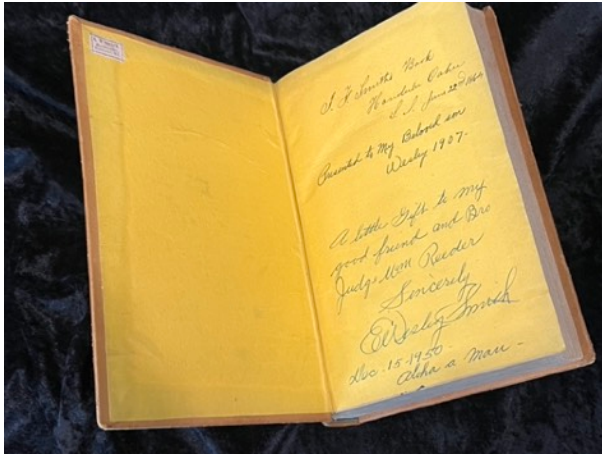 J. F. Smith's Book
Honolulu Oahu
S. I. June 22nd 1864
Presented to My Beloved son
Wesley 1907.
A little Gift to my
good friend and Bro
Judge Wm. Reeder
Sincerely
E Wesley Smith
Dec. 15-1950.
Aloha a Mau -